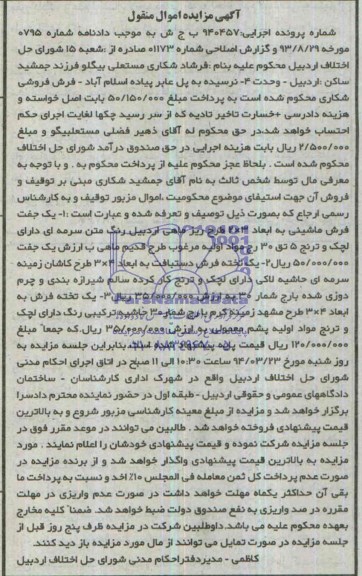 آگهی مزایده اموال منقول
شماره پرونده اجرایی:940457 ب ج ش به موجب دادنامه شماره 0795
مورخه 93/8/29 و گزارش اصلاحی شماره 01173 صادره از :شعبه 15 شورای حل
اختلاف اردبیل محکوم علیه بنام :فرشاد شکاری مستعلی بیگلو فرزند جمشید
ساکن :اردبیل - وحدت 4- نرسیده به پل عابر پیاده اسلام آباد - فرش فروشی
شکاری محکوم شده است به پرداخت مبلغ 50/150/000 بابت اصل خواسته و
هزینه دادرسی +خسارت تاخیر تادیه که از سر رسید چکها لغایت اجرای حکم
احتساب خواهد شد.در حق محکوم له آقای ذهیر فضلی مستعلیبیگو و مبلغ
2/500/000 ریال بابت هزینه اجرایی در حق صندوق درآمد شورای حل اختلاف
محکوم شده است . بلحاظ عجز محکوم علیه از پرداخت محکوم به . و با توجه به
معرفی مال توسط شخص ثالث به نام آقای جمشید شکاری مبنی بر توقیف و
فروش آن جهت استیفای موضوع محکومیت .اموال مزبور توقیف و به کارشناس
رسمی ارجاع که بصورت ذیل توصیف و تعرفه شده و عبارت است :1- یک جفت
فرش ماشینی به ابعاد 4×3 طرح ریز ماهی اردبیل رنگ متن سرمه ای دارای
لچک و ترنج 5 تق 30 رج مواد اولیه مرغوب طرح قدیم ماهی ب ارزش یک جفت
50/000/000 ریال2- یک تخته فرش دستبافت به ابعاد 4×3 طرح کاشان زمینه
سرمه ای حاشیه لاکی دارای لچک و ترنج کار کرده سالم شیرازه بندی و چرم
دوزی شده بارج شمار به ارزش 35/000/000 ریال 3- یک تخته فرش به
ابعاد 4×3 طرح مشهد زمینه کرم بارج شمار حاشیه ترکیبی رنگ دارای لچک
و ترنج مواد اولیه پشم معمولی به ارزش 35/000/000 ریال.که جمعا" مبلغ
120/000/000 ریال قیمت پایه شده است. بنابراین جلسه مزایده به
روز شنبه مورخ 94/03/23 ساعت 10:30 الی 11 صبح در اتاق اجرای احکام مدنی
شورای حل اختلاف اردبیل واقع در شهرک اداری کارشناسان - ساختمان
دادگاههای عمومی و حقوقی اردبیل - طبقه اول در حضور نماینده محترم دادسرا
برگزار خواهد شد و مزایده از مبلغ معینه کارشناسی مزبور شروع و به بالاترین
قیمت پیشنهادی فروخته خواهد شد . طالبین می توانند در موعد مقرر فوق در
جلسه مزایده شرکت نموده و قیمت پیشنهادی خودشان را اعلام نمایند . مورد
مزایده به بالاترین قیمت پیشنهادی واگذار خواهد شد و از برنده مزایده در
صورت عدم پرداخت کل ثمن معامله فی المجلس 10% اخذ و نسبت به پرداخت ما
بقی آن حداکثر یکماه مهلت خواهد داشت در صورت عدم واریزی در مهلت
مقرره در صد واریزی به نفع صندوق دولت ضبط خواهد شد. ضمنا" کلیه مخارج
بعهده محکوم علیه می باشد.داوطلبین شرکت در مزایده ظرف پنج روز قبل از
جلسه مزایده در صورت تمایل می توانند از مال مورد مزایده باز دید کنند.
کاظمی - مدیردفتراحکام مدنی شورای حل اختلاف اردبیل